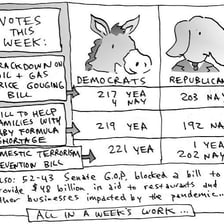 VOTES
THIS
WEEK:
DEMOCRATS
REPUBLICAN
CRACKDOWN ON
OIL + GAS
PRICE GOUGING
BILL
217 YEA
4 NAY
203 NAY
BILL TO HELP
FAMILIES WITH
BABY FORMULA
SHORTAGE
219 YEA
192 NA
DOMESTIC TERRORISM
PREVENTION BILL
221 YEA
1 YEA
202 NAY
ALSO: 52-43 Senate G.O.P. blocked a bill to
provide $48 billion in aid to restaurants and
other businesses impacted by the pandemic...
ALL IN A WEEK'S WORK...